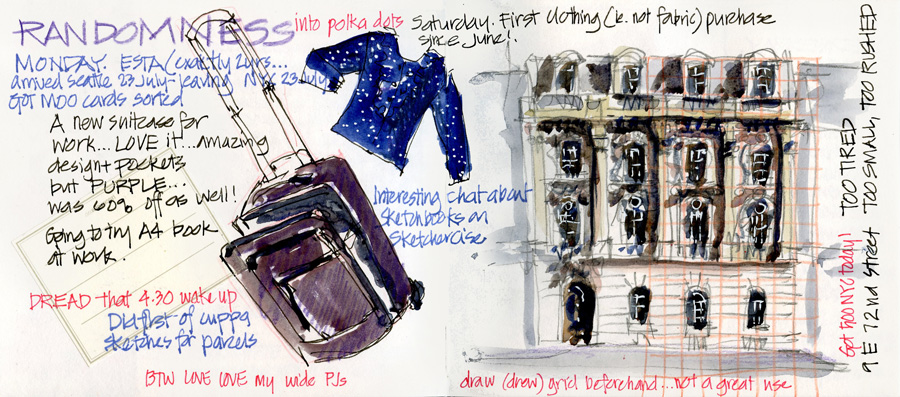 RANDOMNESS
MONDAY. ESTA (exactly 2 yrs...
arrived seattle 23 July - leaving NYC 23 July
Got MOO cards sorted
A new suitcase for
work... LOVE it... amazing
design + pockets
but PURPLE...
was 60% off as well!
Going to try A4 book
at work.
DREAD that 4.30 wake up
Did first of cuppa
sketches for parcels
BTW LOVE LOVE my wide PJs
into polka dots
Saturday. First clothing (ie. not fabric) purchase
since June!.
Interesting chat about
sketchbooks on
sketchercise
draw (drew) grid beforehand... not a great use
Get NYC today!
9 E 72nd Street
TOO TIRED
TOO SMALL, TOO RUSHED